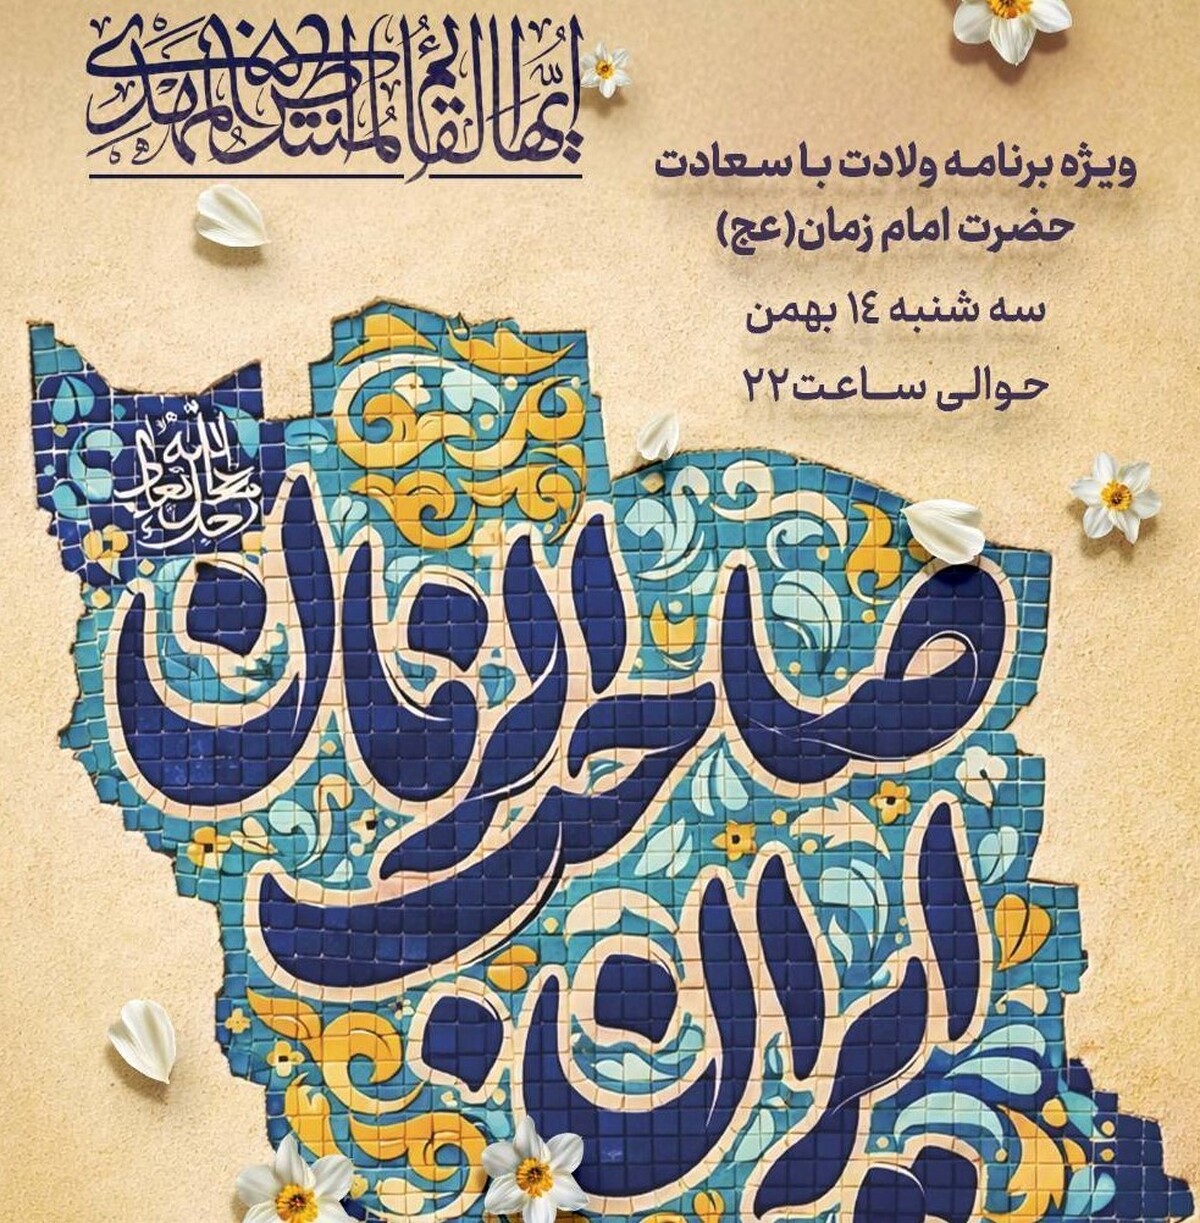 ایها القائم المنتظر المهدی
ویژه برنامه ولادت با سعادت
حضرت امام زمان(عج)
سه شنبه ١٤ بهمن
حوالی ساعت٢٢
صاحب الزمان
ایران